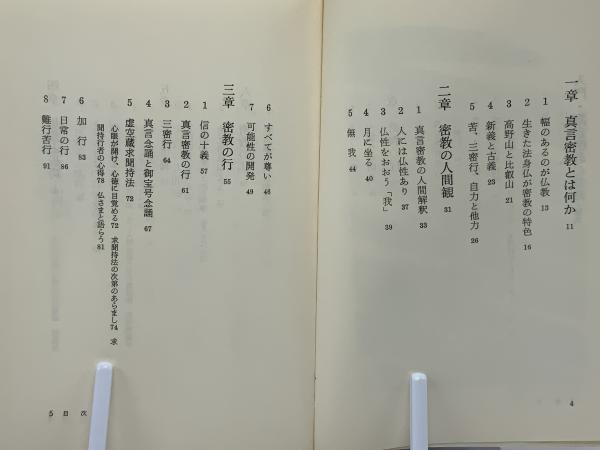 一章 真言密教とは何か 11
1 幅のあるのが仏教 13
2 生きた法身仏が密教の特色 16
3 高野山と比叡山 21
4 新義と古義 23
5 苦、三密行、自力と他力 26
二章 密教の人間観 31
1 真言密教の人間解釈 33
2 人には仏性あり 37
3 仏性をおおう「我」 39
4 月に坐る 40
5 無我 44
4
6 すべてが尊い 46
7 可能性の開発 49
三章 密教の行 55
1 信の十義 57
2 真言密教の行 61
3 三密行 64
4 真言念誦と御宝号念誦 67
5 虚空蔵求聞持法 72
心眼が開け、心徳に目覚める 72 求聞持法の次第のあらまし 74 求
聞持行者の心得 78 仏さまと語らう 81
6 加行 83
7 日常の行 86
8 難行苦行 91
5 目次